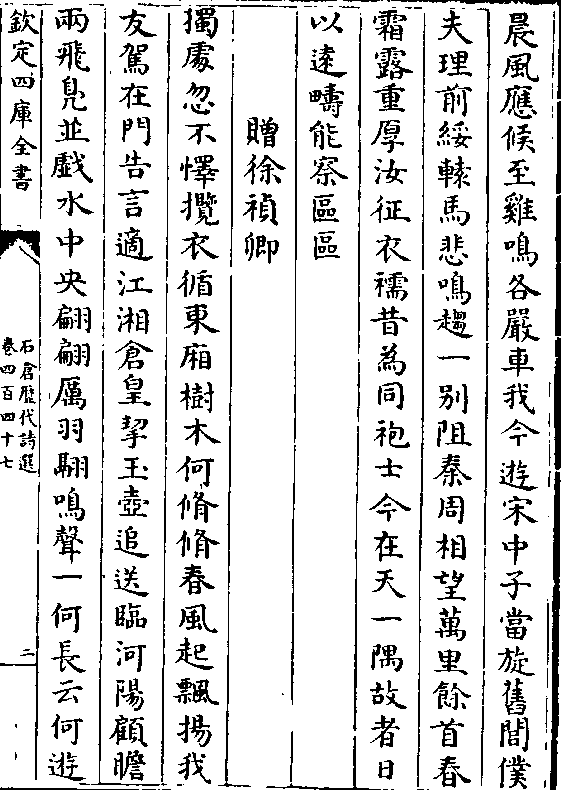 晨風應候至雞鳴各嚴車我今遊宋中子當旋舊閭僕
夫理前綏轅馬悲鳴趨一别阻秦周相望萬里餘首春
霜露重厚汝征衣襦昔為同袍士今在天一隅故者日
以逺疇能察區區
贈徐禎卿
獨處忽不懌攬衣循東廂樹木何脩脩春風起飄揚我
友駕在門告言適江湘倉皇挈玉壺追送臨河陽顧瞻
兩飛鳬並戲水中央翩翩厲羽翮鳴聲一何長云何遊
欽定四庫全書
石倉歷代詩選
卷四百四十七
二